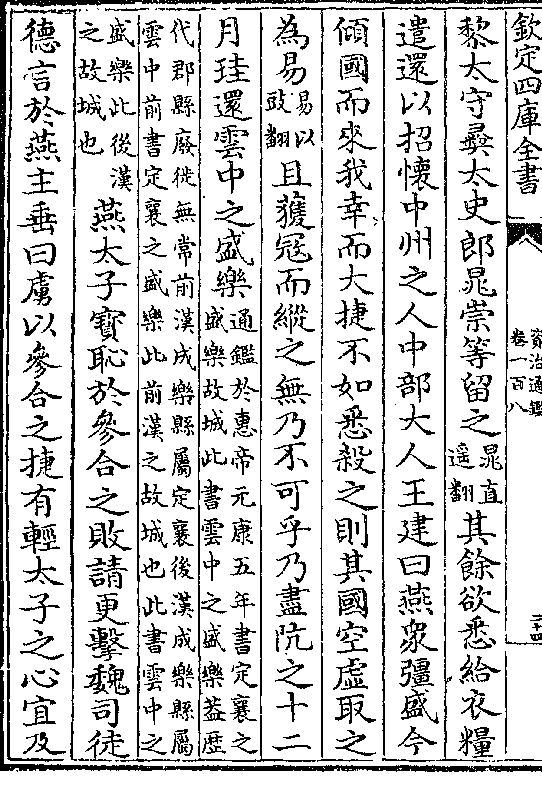 欽定四庫全書
資治通鑑
卷一百八
黎太守彛太史郎晁崇等留之晁直遥翻其餘欲悉給衣糧
遣還以招懷中州之人中部大人王建曰燕衆彊盛今
傾國而來我幸而大捷不如悉殺之則其國空虚取之
為易易以豉翻且獲冦而縱之無乃不可乎乃盡阬之十二
月珪還雲中之盛樂通鑑於惠帝元康五年書定襄之
盛樂故城此書雲中之盛樂葢歴
代郡縣廢徙無常前漢成樂縣屬定襄後漢成樂縣屬
雲中前書定襄之盛樂此前漢之故城也此書雲中之
盛樂此後漢之故城也燕太子寳恥於參合之敗請更擊魏司徒
德言於燕主垂曰虜以參合之捷有輕太子之心宜及